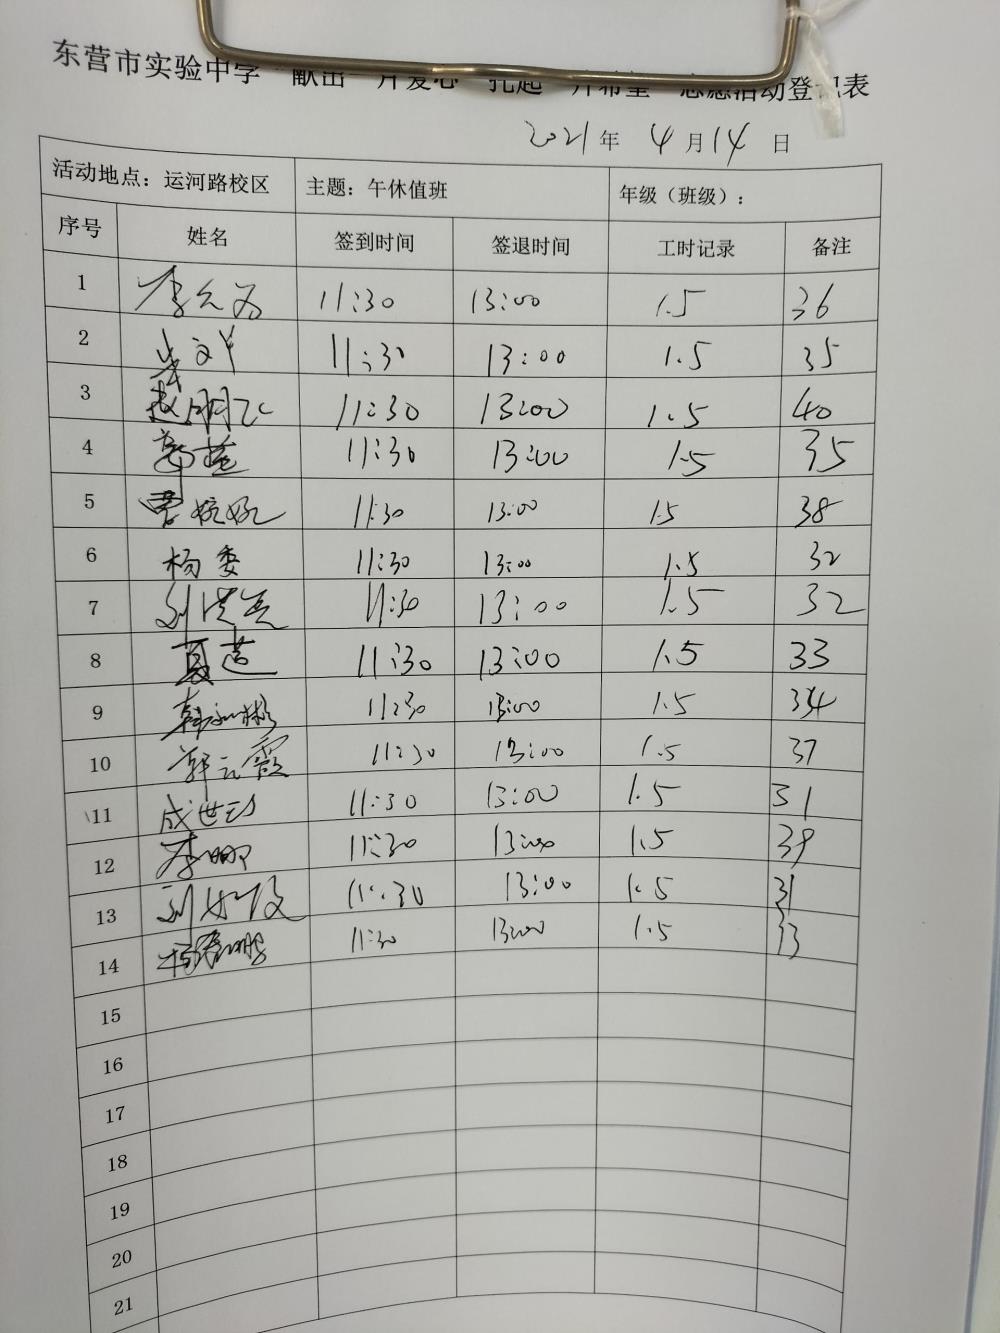 东营市实验中学“献出一片爱心 托起一片希望”志愿活动登记表
2021年 4月14日
活动地点：运河路校区 主题：午休值班 年级（班级）：
序号 姓名 签到时间 签退时间 工时记录 备注
1 11:30 13:00 1.5 36
2 11:30 13:00 1.5 35
3 11:30 13:00 1.5 40
4 11:30 13:00 1.5 35
5 11:30 13:00 1.5 38
6 杨委 11:30 13:00 1.5 32
7 11:30 13:00 1.5 32
8 11:30 13:00 1.5 33
9 11:30 13:00 1.5 34
10 郭云霞 11:30 13:00 1.5 37
11 11:30 13:00 1.5 31
12 李娜 11:30 13:00 1.5 39
13 11:30 13:00 1.5 31
14 11:30 13:00 1.5 33
15
16
17
18
19
20
21